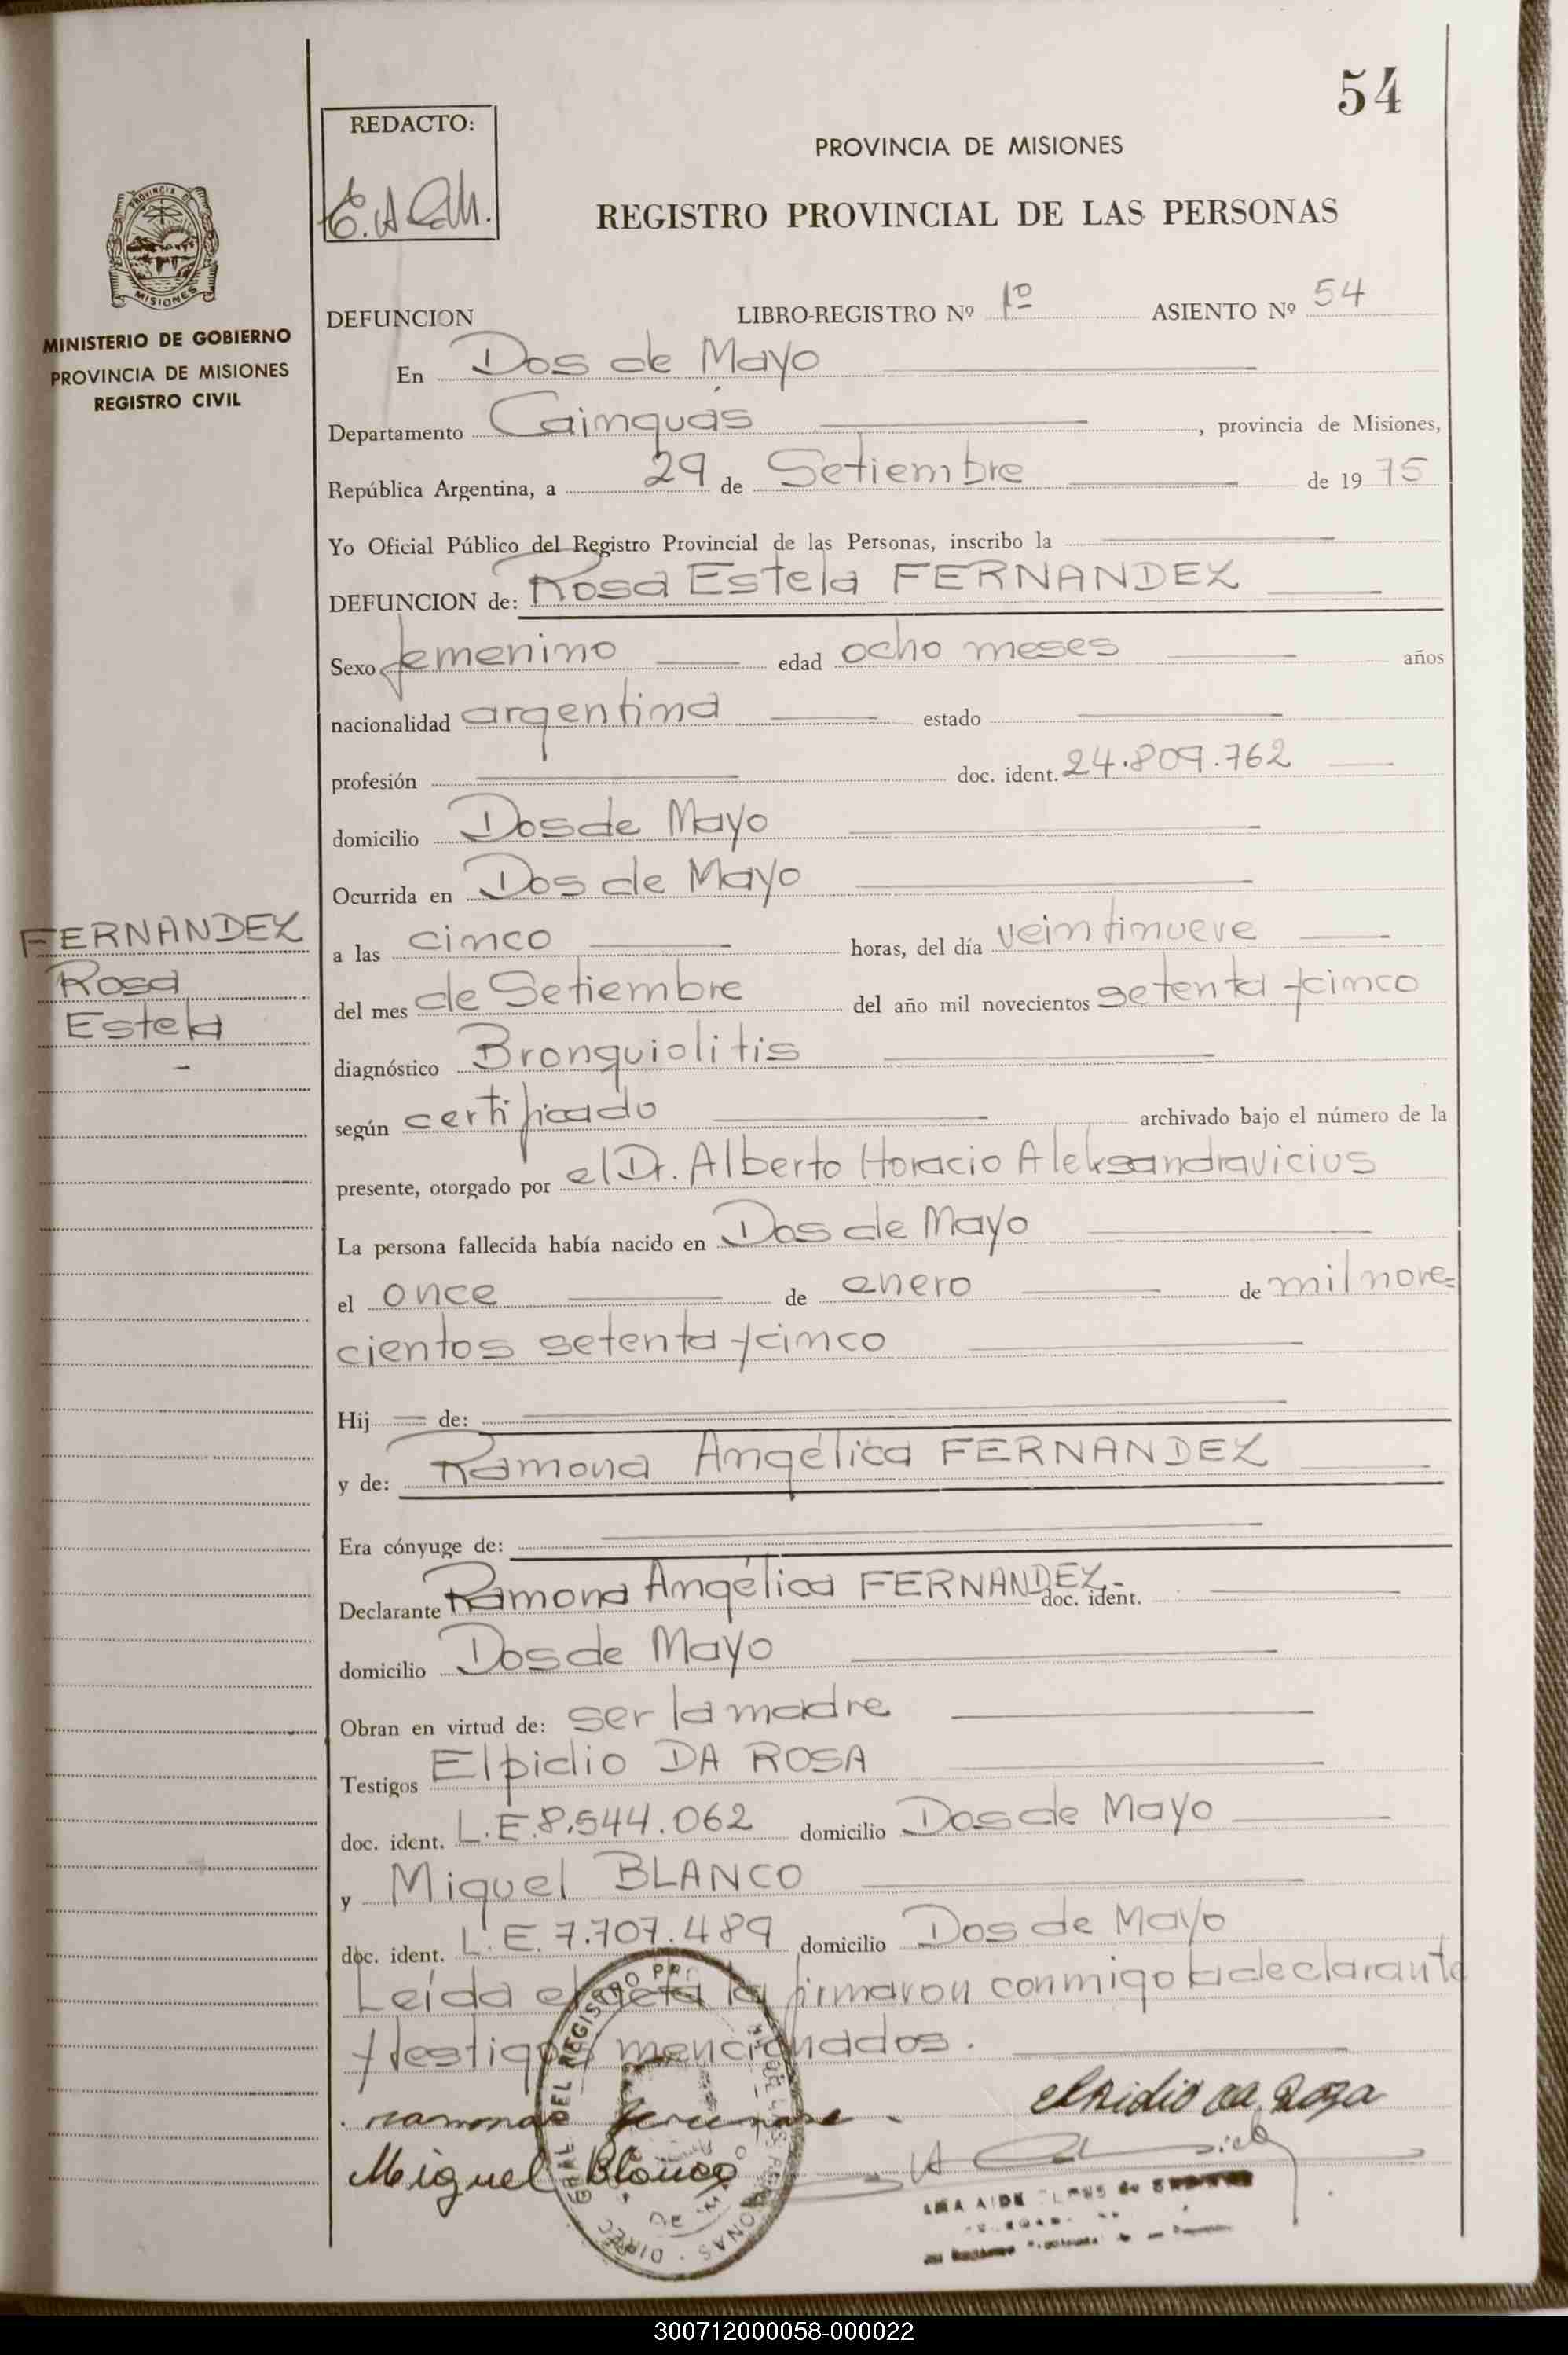 54
REDACTO:
E.A.
PROVINCIA DE MISIONES
REGISTRO PROVINCIAL DE LAS PERSONAS
PROVINCIA DE
MISIONES
MINISTERIO DE GOBIERNO
PROVINCIA DE MISIONES
REGISTRO CIVIL
DEFUNCION LIBRO-REGISTRO Nº 1º ASIENTO Nº 54
En Dos de Mayo
Departamento Cainguás, provincia de Misiones,
República Argentina, a 29 de Setiembre de 1975
Yo Oficial Público del Registro Provincial de las Personas, inscribo la
DEFUNCION de: Rosa Estela FERNANDEZ
Sexo femenino edad ocho meses años
nacionalidad argentina estado
profesión doc. ident. 24.809.762
domicilio Dos de Mayo
Ocurrida en Dos de Mayo
FERNANDEZ
Rosa
Estela
-
a las cinco horas, del día veintinueve
del mes de Setiembre del año mil novecientos setenta y cinco
diagnóstico Bronquiolitis
según certificado archivado bajo el número de la
presente, otorgado por el Dr. Alberto Horacio Aleksandravicius
La persona fallecida había nacido en Dos de Mayo
el once de enero de mil nove=
cientos setenta y cinco
Hij de:
y de: Ramona Angélica FERNANDEZ
Era cónyuge de:
Declarante Ramona Angélica FERNANDEZ.- doc. ident.
domicilio Dos de Mayo
Obran en virtud de: ser la madre
Testigos Elpidio DA ROSA
doc. ident. L.E.8.544.062 domicilio Dos de Mayo
y Miguel BLANCO
doc. ident. L.E. 7.707.489 domicilio Dos de Mayo
Leída el acta la firmaron conmigo la declarante
y testigos mencionados.
ramona
elpidio da Roza
Miguel Blanco
DIREC. GRAL. DEL REGISTRO
PERSONAS
300712000058-000022